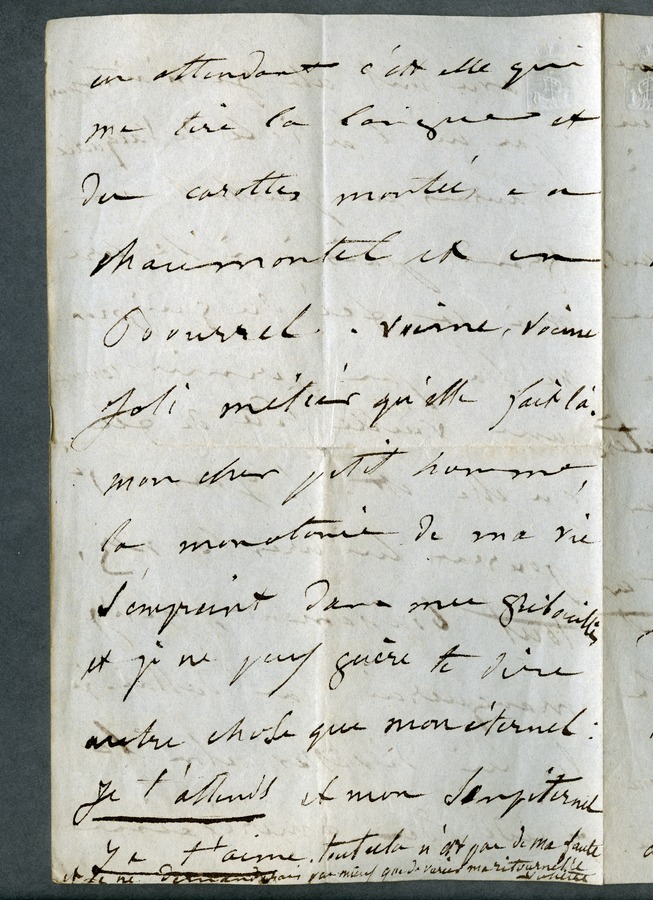 en attendant c'est elle qui
me tire la langue et
des carottes montées e a
Chaumontel et en
Bourrel . . voime, voime
joli métier qu'elle fait là.
mon cher petit homme,
la monotonie de ma vie
s'empreint dans mes gribouillis
et je ne puis guère te dire
autre chose que mon éternel :
je t'attends et mon sempiternel
Je t'aime. tout cela n'est pas de ma faute
et je ne demanderais pas mieux que de varier ma ritournelle
Juliette